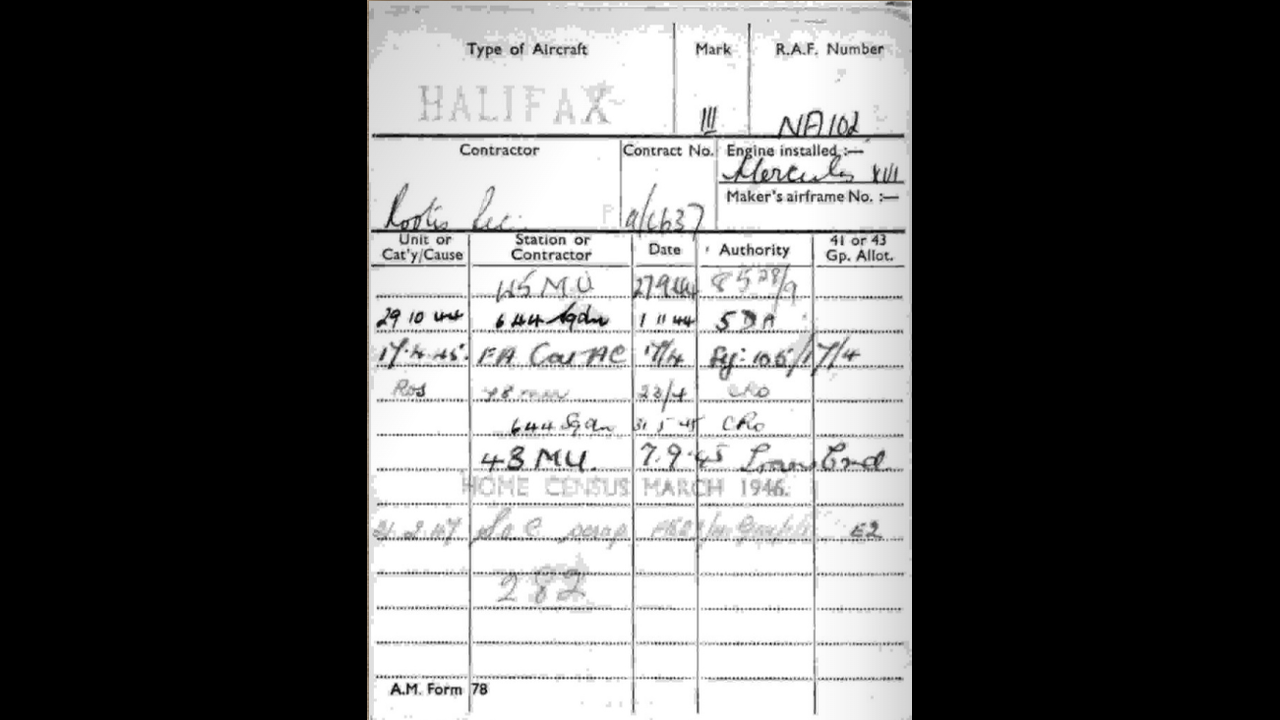 Type of Aircraft Mark R.A.F. Number
HALIFAX III NA102
Contractor Contract No. Engine installed :—
Hercules XVI
Maker's airframe No. :—
Rootes Sec. a/c637
Unit or Cat'y/Cause Station or Contractor Date Authority 41 or 43 Gp. Allot.
45 MU 27 9 44
29 10 44 644 Sqdn 1 11 44 SDA
17.4.45. FA Cat AC 17/4 Sy: 105/17/4
ROS 23/4 CRO
644 Sqdn 31 5 45 CRO
48 MU. 7.9.45
HOME CENSUS MARCH 1946.
21 2 47 SoC scrap E2
282
A.M. Form 78